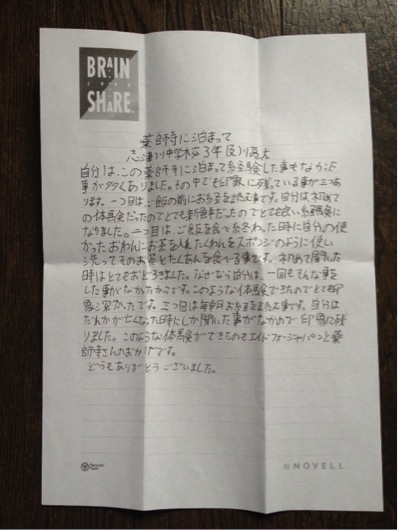 BRAIN
SHARE
薬師寺に泊まって
志津川中学校3年 及川高大
自分は、この薬師寺に泊まって経験した事もなかった
事が多くありました。その中でも印象に残っている事が三つあ
ります。一つ目はご飯の前にお経を読む事です。自分は初めて
の体験だったのでとても新鮮だったのでとても良い経験に
なりました。二つ目は、ご飯を食べ終わった時に自分の使
かったおわんにお茶を入れたくわんをスポンジのように使い
洗ってそのお茶とたくあんを食べる事です。初めて聞いた
時はとてもおどろきました。なぜなら自分は、一回もそんな事を
した事がなかったからです。このような体験できたのでとても印
象深かったです。三つ目は毎朝お経を読む事です。自分は
だれかが亡くなった時にしか聞いた事がなかので印象に残
りました。このような体験ができたのもエイドフォージャパンと薬
師寺さんのおかげです。
どうもありがとうございました。
NOVELL